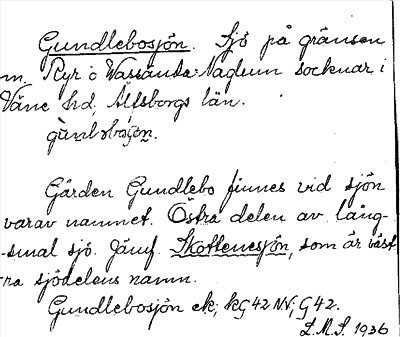 Gundlebosjön. Sjö på gränsen
m. Ryr o Vassända-Naglum socknar i
Väne hd, Älfsborgs län.
Gården Gundlebo finnes vid sjön
varav namnet. Östra delen av lång-
-smal sjö. Jämf. Skottenesjön, som är väst
ra sjödelens namn.
Gundlebosjön ek; kG 42 NV, G 42.
L.M.S. 1936